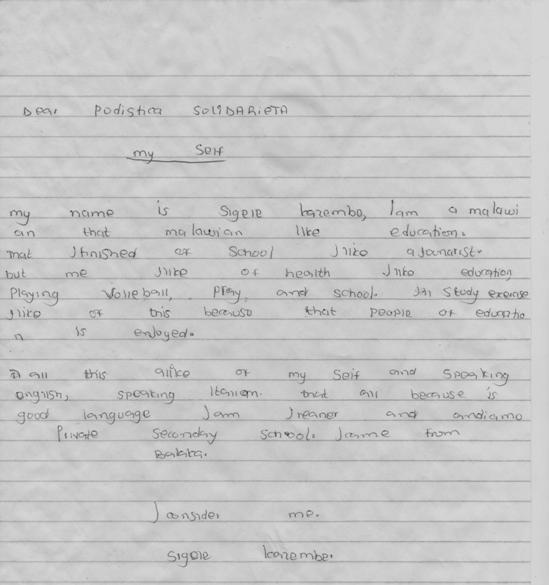 Dear Podistica SOLIDARIETA
my Self
my name is Sigele kazembe, I am a malawi
an that malawian like education.
that I finished of School I like a Jounarist.
but me I like of health I like education
Playing Volleball, Play, and school. In Study exercise
I like of this because that people of educatio
n is enjoyed.
all this alike of my Self and Speaking
english, speaking Italian. that all because is
good language I am Jreaner and andiamo
Private Secondary School. I came from
Balaka.
I consider me.
Sigele kazembe.